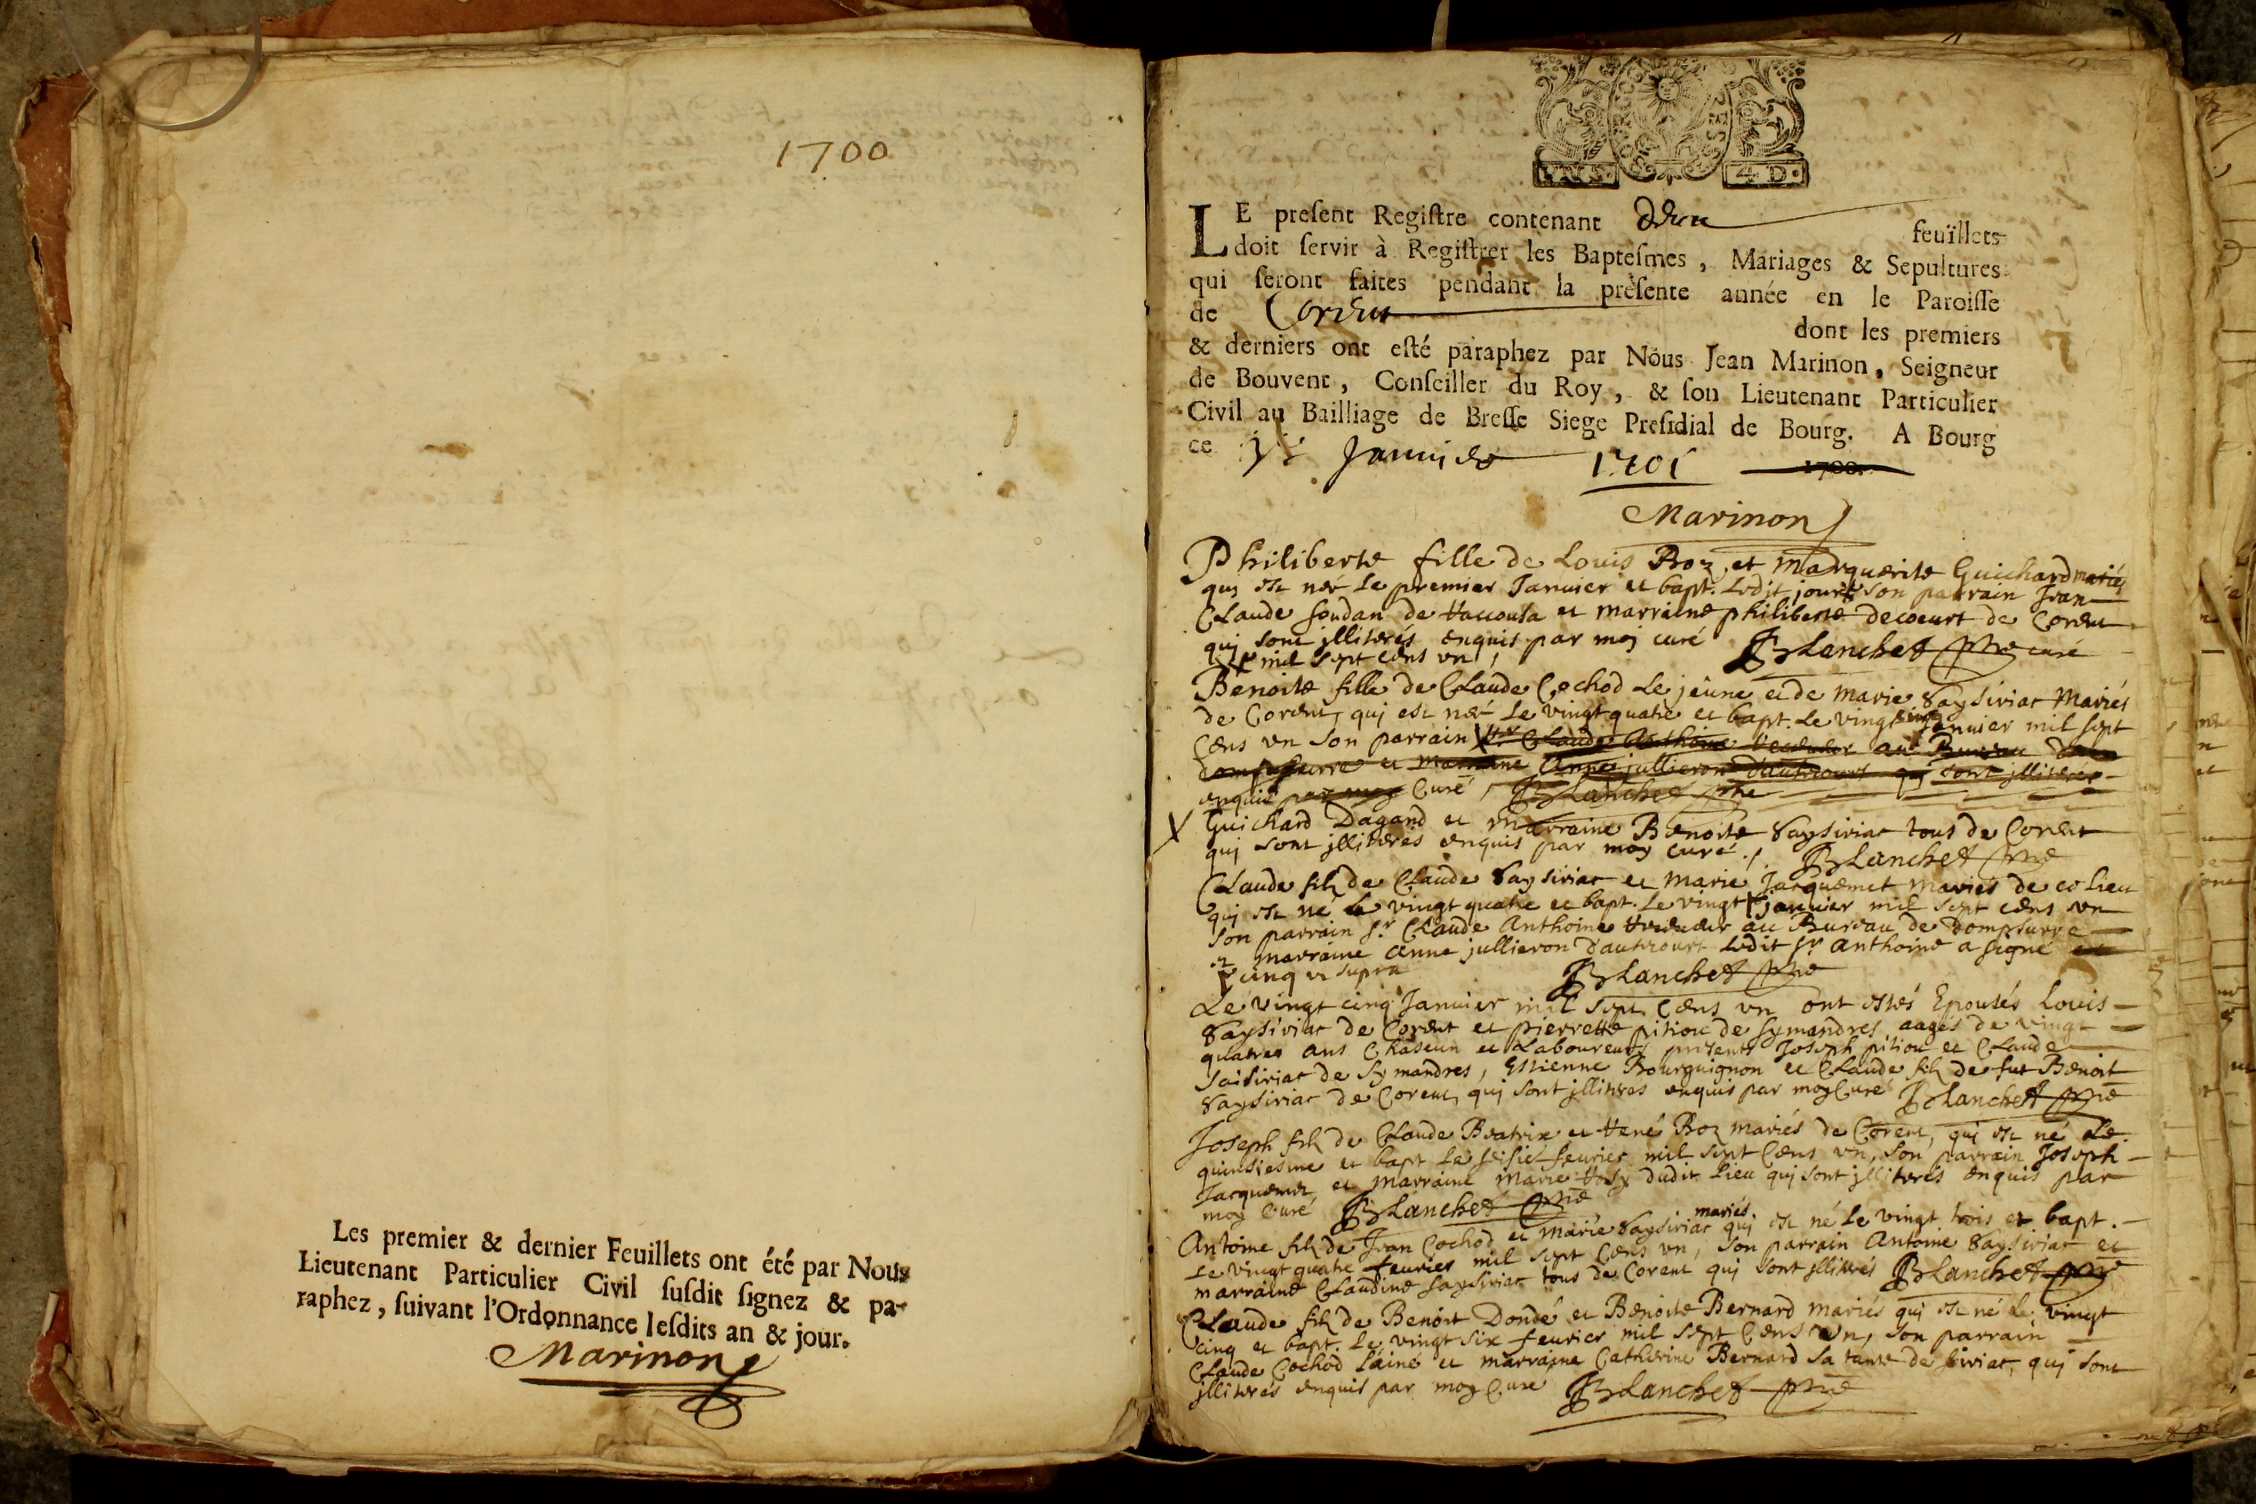 1700
Les premier & dernier Feuillets ont été par Nous
Lieutenant Particulier Civil ſuſdit ſignez & pa-
raphez, ſuivant l'Ordonnance leſdits an & jour.
Marinon
4 D.
LE preſent Regiſtre contenant feuïllets
doit ſervir à Regiſtrer les Bapteſmes, Mariages & Sepultures
qui ſeront faites pendant la preſente année en le Paroiſſe
de Corent dont les premiers
& derniers ont eſté paraphez par Nous Jean Marinon, Seigneur
de Bouvent, Conſeiller du Roy, & ſon Lieutenant Particulier
Civil au Bailliage de Breſſe Siege Preſidial de Bourg. A Bourg
ce Janvier 1701 1700.
Marinon
Philiberte fille de Louis Roz, et Marguerite Guichard mariés
qui est neé le premier Janvier et bapt. ledit jour son parrain Jean
Claude Soudan de et marraine philiberte decoeurt de Corent
qui sont jlliterés enquis par moj curé Blanchet ptre curé
mil sept cens vn
Benoite fille de Claude Cochod le jeune et de Marie Saysiriat Mariés
de Corent, qui est neé le vingt quatre et bapt. le vingt cinq janvier mil sept
Cens vn son parrain Sr Claude Anthoine au Bureau de
dompsurre et marraine Anne jullieron dautricourt qui sont jlliterés
enquis par moy Curé, Blanchet ptre
X Guichard Dagand et marraine Benoite Saysiriat tous de Corent
qui sont jlliterés enquis par moy curé. Blanchet ptre
Claude filz de Claude Saysiriat et Marie Jacquemet Mariés de ce Lieu
qui est né le vingt quatre et bapt. le vingt janvier mil sept cens vn
son parrain Sr Claude Anthoine au Bureau de Dompsurre
et marraine Anne jullieron dautricourt ledit Sr Anthoine a signé et
cinq vt supra Blanchet ptre
Le vingt cinq Janvier mil sept Cens vn ont estés Epousés Louis
Saysiriat de Corent et pierrette pitiou de Symandres aagés de vingt
quatres ans Chascun et Laboureurs presents Joseph pitiou et Claude
Saisiriat de Symandres, Estienne Bourguignon et Claude filz de fut Benoit
Saysiriat de Corent, qui sont jlliteres enquis par moy Curé Blanchet ptre
Joseph filz de Claude Beatrix et René Roz mariés de Corent, qui est né le
quinsiesme et bapt le seisie feurier mil sept Cens vn, son parrain Joseph
Jacquemet, et marraine Marie dudit Lieu qui sont jlliterés enquis par
moy Curé Blanchet ptre
Antoine filz de Jean Cochod et Marie Saysiriat mariés qui est né le vingt trois et bapt.
Le vingt quatre feurier mil sept Cens vn, son parrain Antoine Saysiriat et
marraine Claudine Saysiriat tous de Corent qui sont jlliterés Blanchet ptre
Claude filz de Benoit Dondé et Benoite Bernard mariés qui est né le vingt
cinq et bapt. le vingt six feurier mil sept Cens vn, son parrain
Claude Cochod lainé et marraine Catherine Bernard sa tante de siriat, qui sont
jlliterés enquis par moy Curé Blanchet ptre